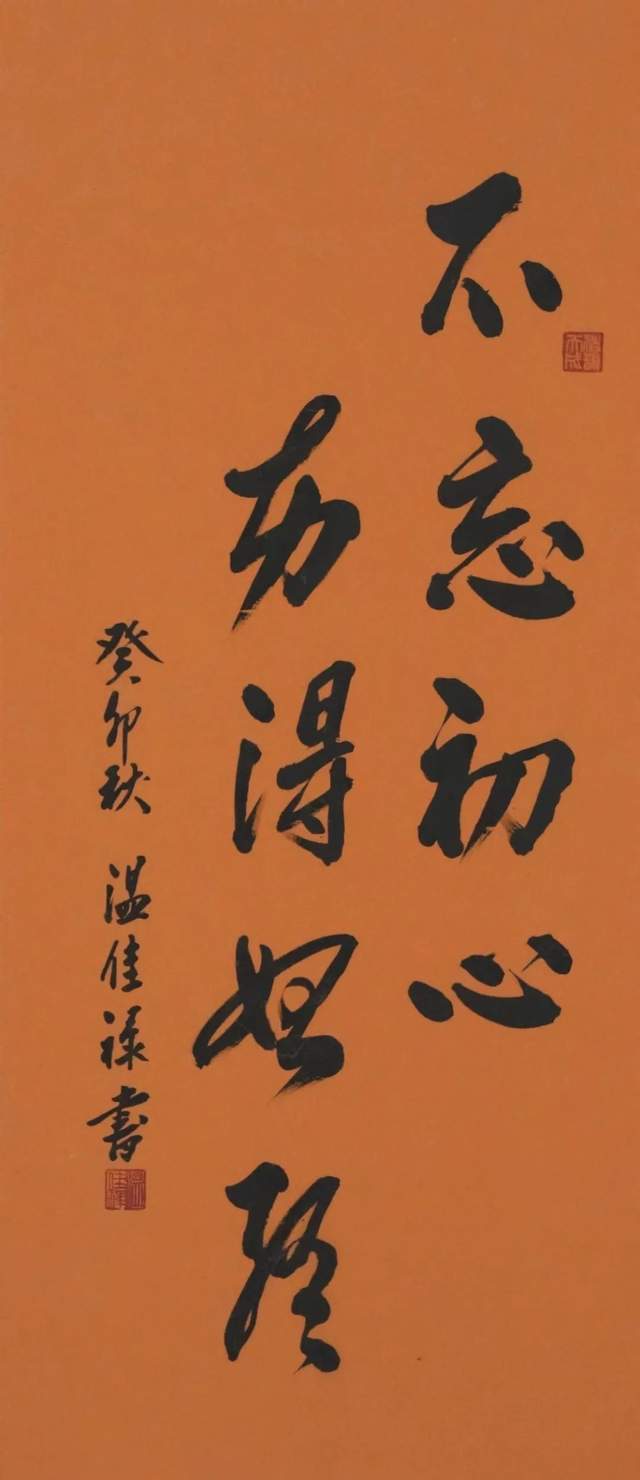 不忘初心
方得始終
癸卯秋 温佳禄書